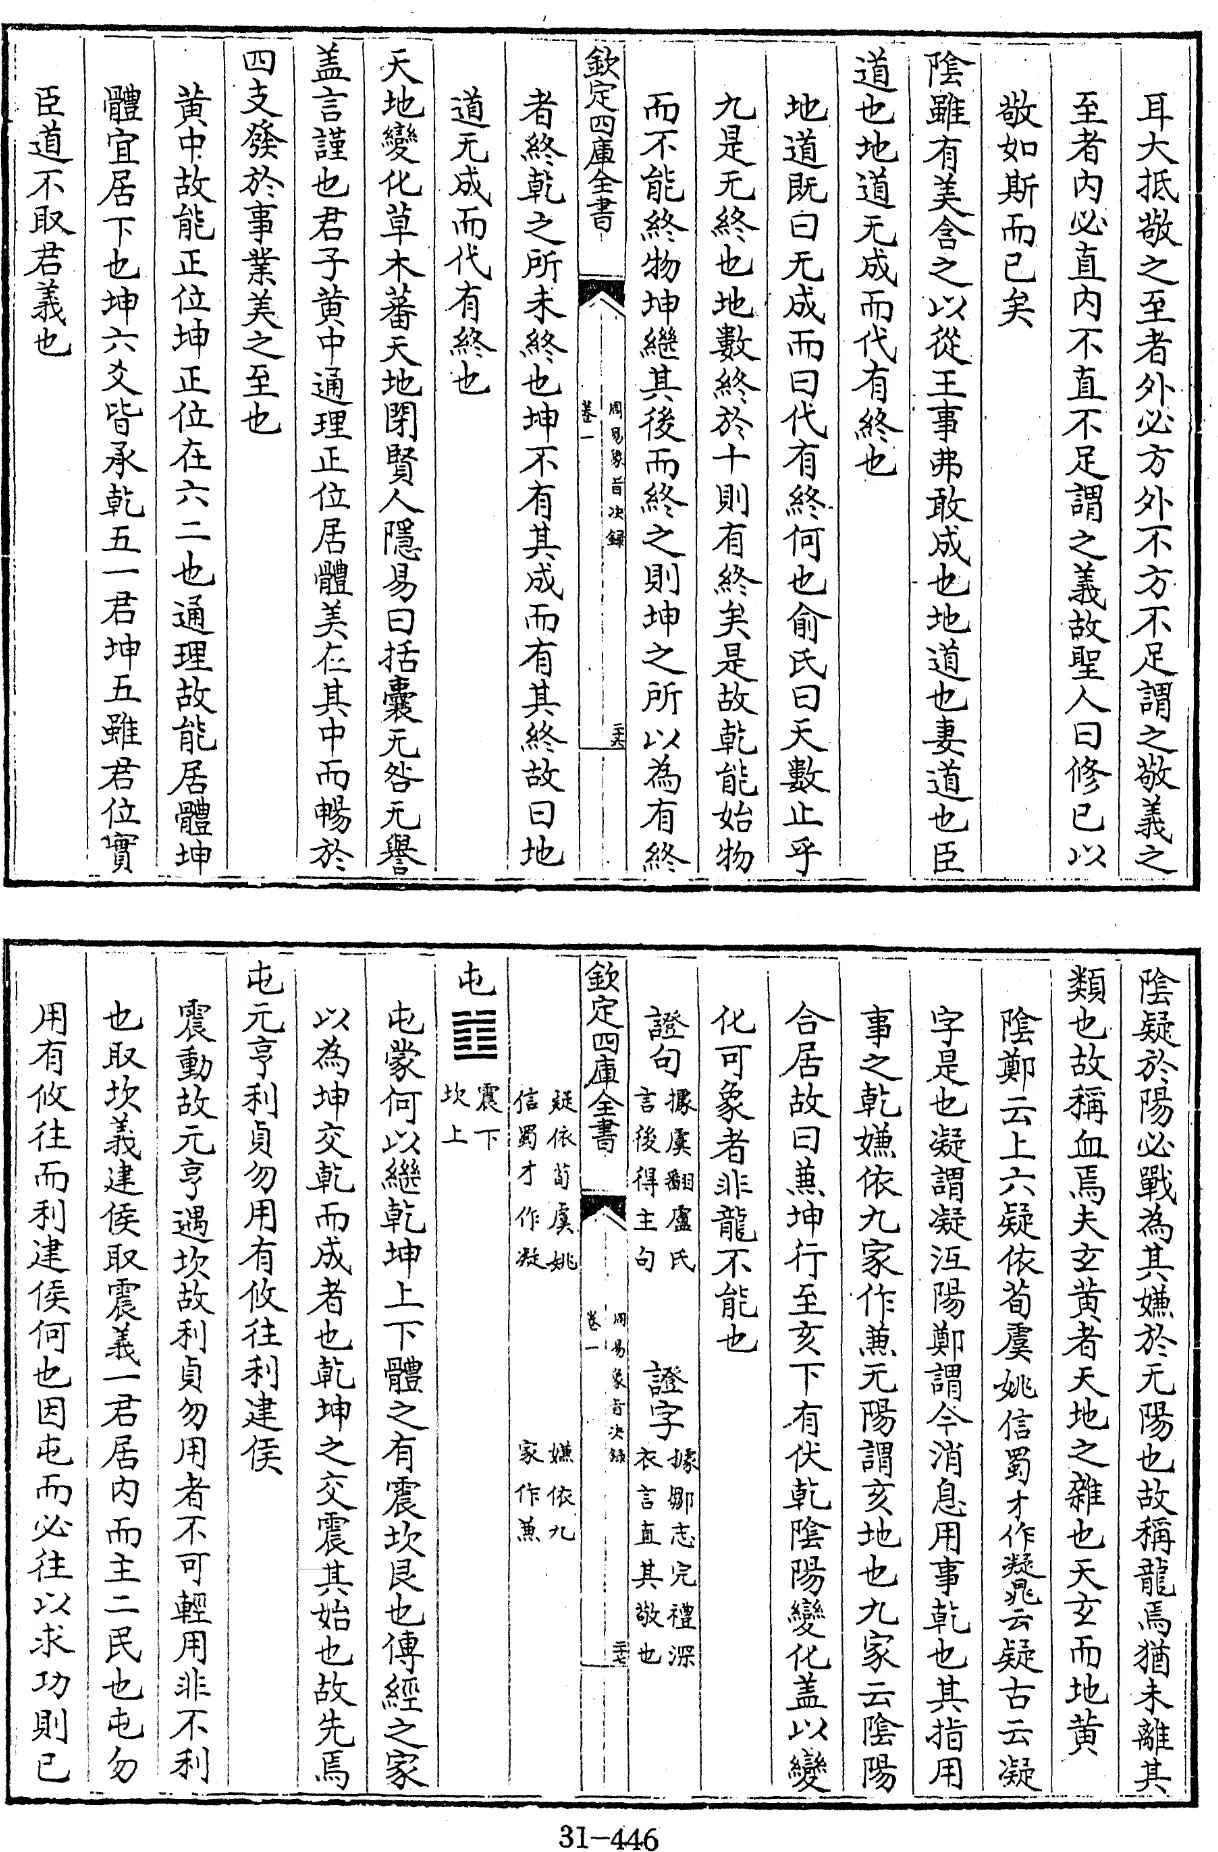 耳大抵敬之至者外必方外不方不足謂之敬義之
至者内必直内不直不足謂之義故聖人曰修已以
敬如斯而已矣
陰雖有美含之以從王事弗敢成也地道也妻道也臣
道也地道无成而代有終也
地道既曰无成而曰代有終何也俞氏曰天數止乎
九是无終也地數終於十則有終矣是故乾能始物
而不能終物坤繼其後而終之則坤之所以為有終
欽定四庫全書
周易象旨决録
卷一
二十六
者終乾之所未終也坤不有其成而有其終故曰地
道无成而代有終也
天地變化草木蕃天地閉賢人隱易曰括囊无咎无譽
盖言謹也君子黄中通理正位居體美在其中而暢於
四支發於事業美之至也
黄中故能正位坤正位在六二也通理故能居體坤
體宜居下也坤六爻皆承乾五一君坤五雖君位實
臣道不取君義也
陰疑於陽必戰為其嫌於无陽也故稱龍焉猶未離其
類也故稱血焉夫玄黄者天地之雜也天玄而地黄
陰鄭云上六疑依荀虞姚信蜀才作凝晁云疑古云凝
字是也凝謂凝沍陽鄭謂今消息用事乾也其指用
事之乾嫌依九家作兼元陽謂亥地也九家云陰陽
合居故曰兼坤行至亥下有伏乾陰陽變化盖以變
化可象者非龍不能也
證句
據虞翻盧氏
言後得主句
證字
據鄒志完禮深
衣言直其敬也
欽定四庫全書
周易象旨决録
卷一
二十七
疑依荀虞姚
信蜀才作凝
嫌依九
家作兼
屯䷂
震下
坎上
屯蒙何以繼乾坤上下體之有震坎艮也傳經之家
以為坤交乾而成者也乾坤之交震其始也故先焉
屯元亨利貞勿用有攸往利建侯
震動故元亨遇坎故利貞勿用者不可輕用非不利
也取坎義建侯取震義一君居内而主二民也屯勿
用有攸往而利建侯何也因屯而必往以求功則已
31-446